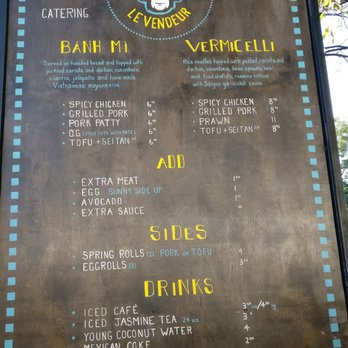 CATERING
LE VENDEUR
BÁNH MÌ
Served on toasted bread and topped with
pickled carrots and daikon, cucumbers,
cilantro, jalapeño and home-made
Vietnamese mayonnaise
SPICY CHICKEN 6
GRILLED PORK 6
PORK PATTY 6
OG (COLD CUTS WITH PATE) 6
TOFU + SEITAN 6
VERMICELLI
Rice noodles topped with pickled carrots and
daikon, cucumbers, bean sprouts, basil,
mint, fried shallots, romaine lettuce
with Saigon garlic-chili sauce
SPICY CHICKEN 8
GRILLED PORK 8
PRAWN 11
TOFU + SEITAN 8
ADD
EXTRA MEAT
EGG SUNNY SIDE UP
AVOCADO
EXTRA SAUCE
SIDES
SPRING ROLLS (2) PORK OR TOFU 4
EGGROLLS (3) 3
DRINKS
ICED CAFÉ
ICED JASMINE TEA 24 oz 3
YOUNG COCONUT WATER 4
MEXICAN COKE 2